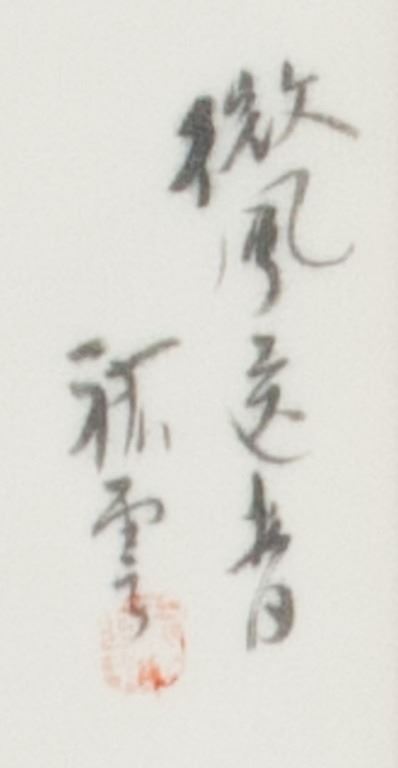 微風送香
孤雲